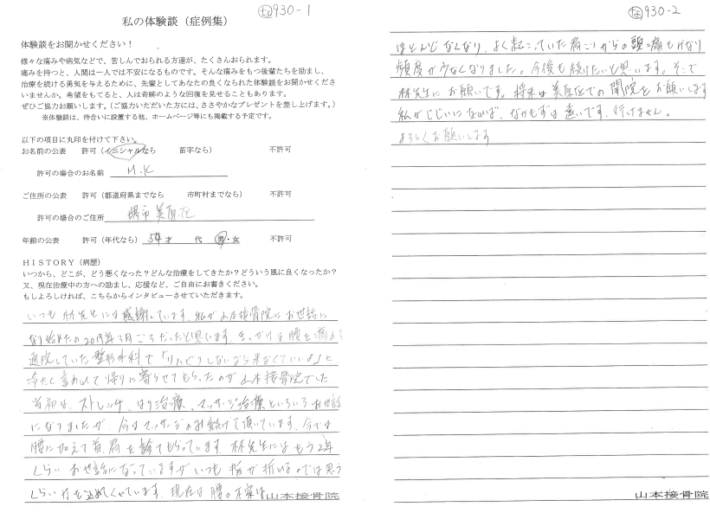 930-1
私の体験談（症例集）
体験談をお聞かせください！
様々な痛みや病気などで、苦しんでおられる方達が、たくさんおられます。
痛みを持つと、人間は一人では不安になるものです。そんな痛みをもつ後輩たちを励まし、
治療を続ける勇気を与えるために、先輩としてあなたの良くなられた体験談をお聞かせくださ
いませんか。希望をもてると、人は奇跡のような回復を見せることもあります。
ぜひご協力お願いします。（ご協力いただいた方には、ささやかなプレゼントを差し上げます。）
※体験談は、待合いに設置する他、ホームページ等にも掲載する予定です。
以下の項目に丸印を付けて下さい。
お名前の公表　許可（イニシャルなら　苗字なら）　不許可
許可の場合のお名前　M.K
ご住所の公表　許可（都道府県までなら　市町村までなら）　不許可
許可の場合のご住所　堺市美原区
年齢の公表　許可（年代なら）　54才　代　男・女　不許可
HISTORY（病歴）
いつから、どこが、どう悪くなった？どんな治療をしてきたか？どういう風に良くなったか？
又、現在治療中の方への励まし、応援など、ご自由にお書きください。
もしよろしければ、こちらからインタビューさせていただきます。
いつも林先生には感謝しています。私が山本接骨院にお世話に
なり始めたの2019年3月ごろだったと思います。きっかけは腰を痛めて
通院していた整形外科で「りハビリしないなら来なくていいよ」と
冷たく言われて帰りに寄らせてもらったのが山本接骨院でした。
当初は、ストレッチ、はり治療、マッサージ治療といろいろお世話
になりましたが 今はマッサージのみ続けて頂いています。今では
腰に加えて首、肩を診てもらっています。林先生にはもう2年
くらい お世話になっていますが いつも 指が折れるのでは思う
くらい 力を込めてくれています。現在は 腰の不安は
山本接骨院
930-2
ほとんどなくなり、よく起こっていた肩こりからの頭の痛もかなり
頻度が少なくなりました。今後も続けたいと思います。そこで
林先生に お願いです。将来は美原区での開院を お願いします
私がじじいになれば、なかもずは遠いです。行けません。
よろしくお願いします
山本接骨院